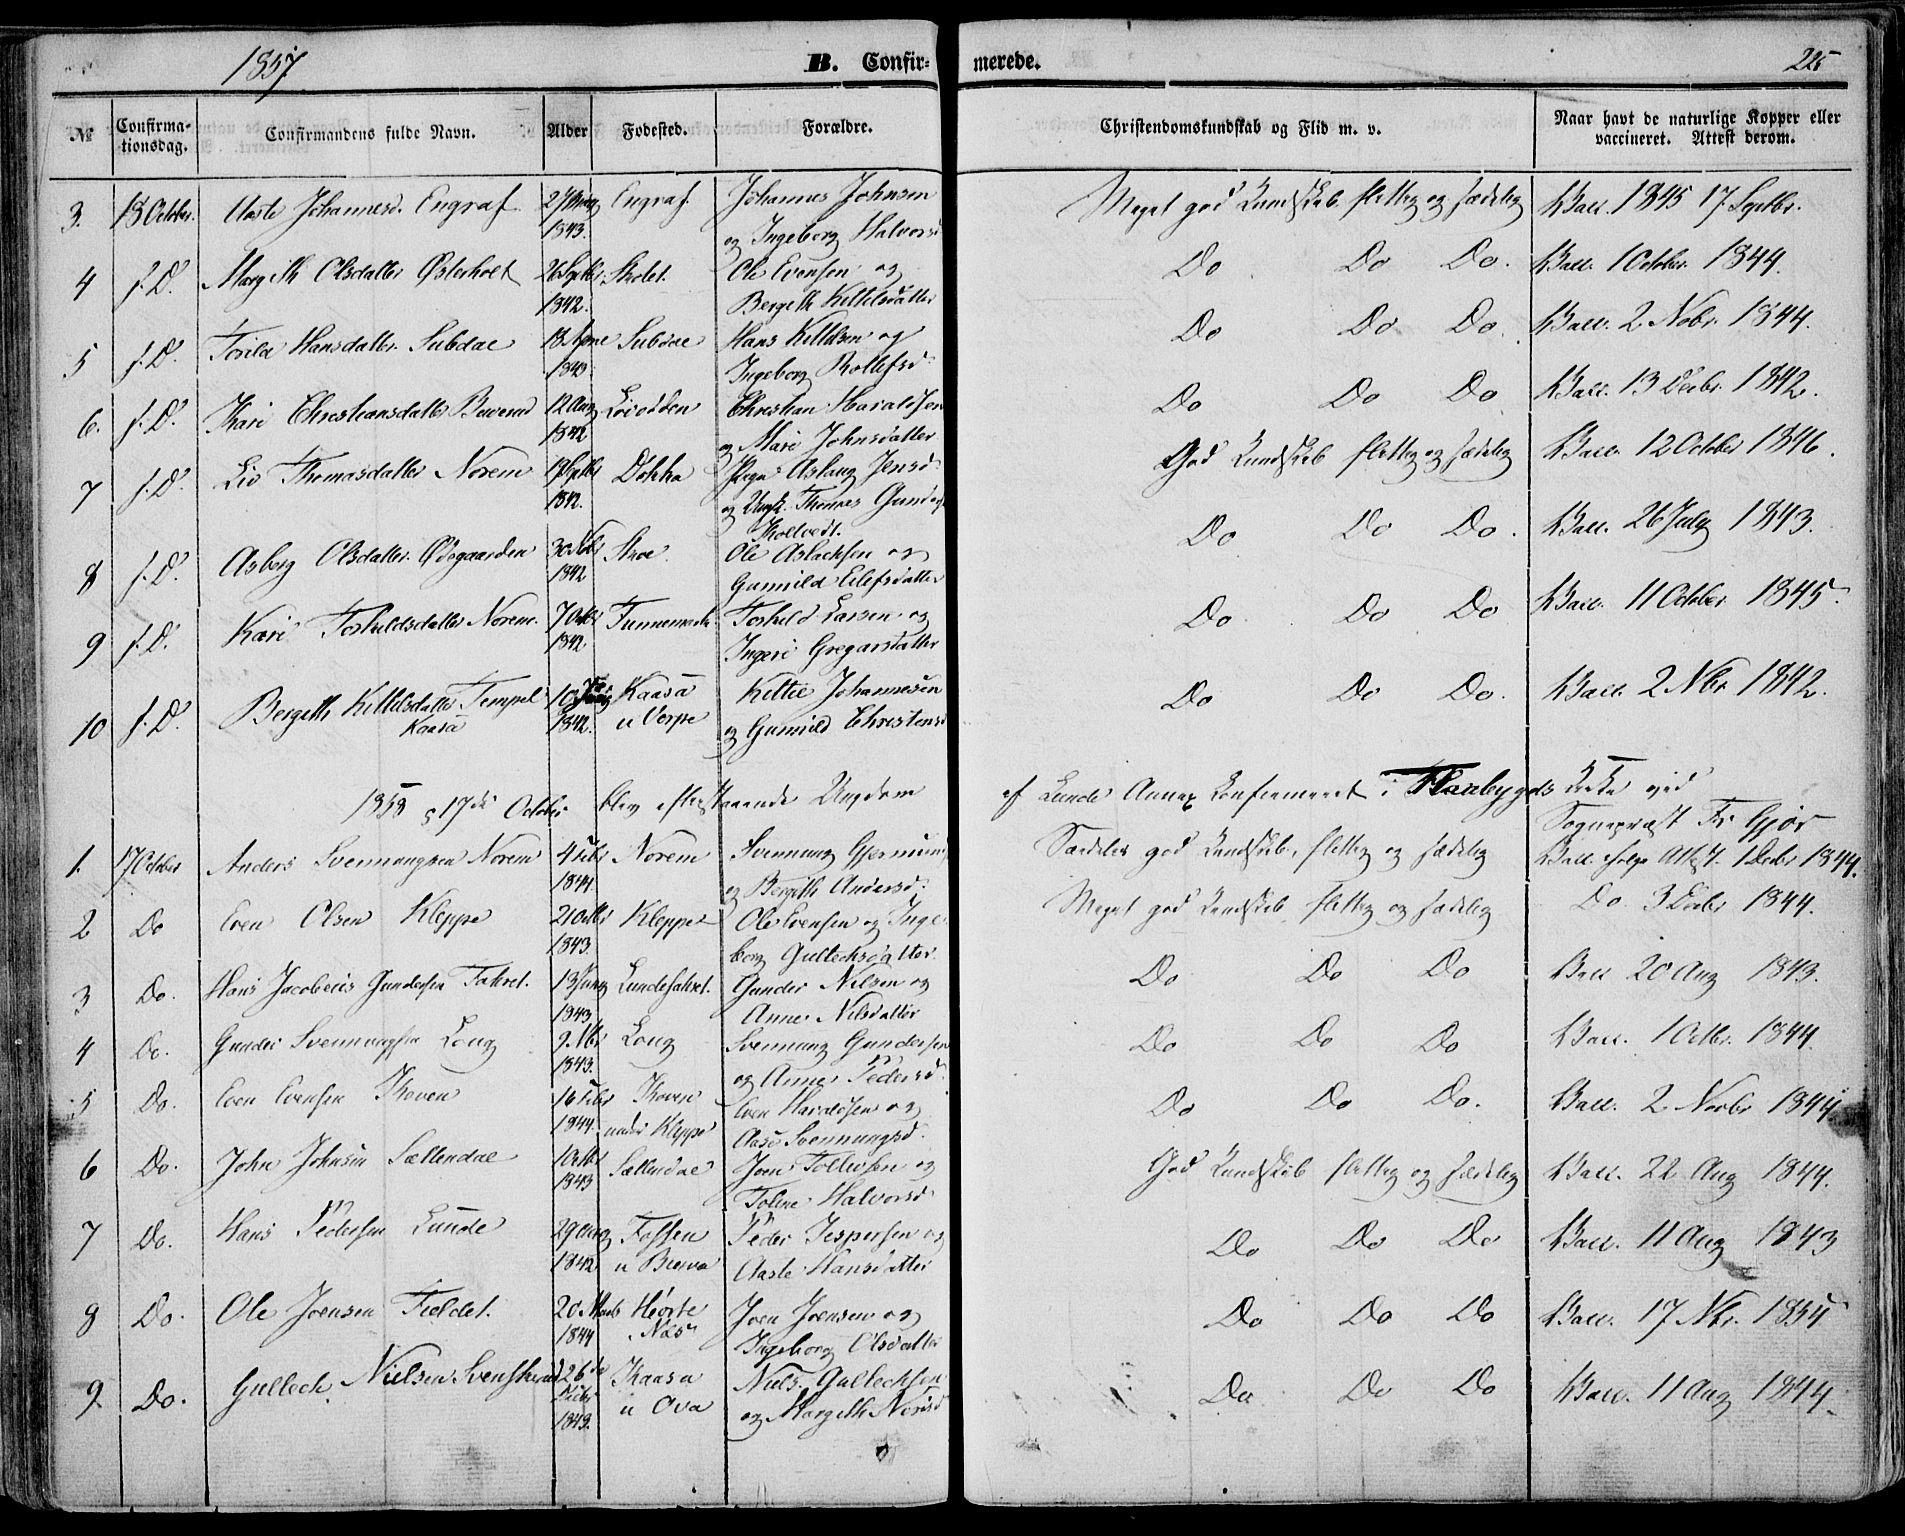 1857 B. Confir- merede. 225
№ Confirmationsdag. Confirmandens fulde Navn. Alder Fodested. Forældre. Christendomskundskab og Flid m. v. Naar havt de naturlige Kopper eller vaccineret. Attest derom.
3. 18 October. Aaste Johannesd. Engraf 1843. Engraf Johannes Johnsen og Ingeborg Halvorsd Meget god Kundskab flittig og sædelig Vacc. 1845 17 Septbr.
4 s. D. Margith Olsdatter Østerholt 26 Septbr 1842. Ole Evensen og Bergith Kittilsdatter Do Do Do. Vacc. 1 October 1844.
5 s. D. Torild Hansdatter Subdae 1843. Subdae Hans Kittilsen og Ingeborg Rollefsd Do Do Do. Vacc. 2 Nobr. 1844.
6. s. D. Kari Christiansdatter 12 Aug 1842 Christian Haraldsen og Mari Johnsdatter Do Do Do Vacc. 13 Decbr. 1842.
7 s. D. Liv Thomasdatter Norem Septbr 1842. Dokka Aslaug Jensd og Thomas God Kundskab flittig og sædelig Vacc. 12 October 1846.
8 s. D. Asberg Olsdatter Ødegaarden 1842 Ole Aslacksen og Gunnild Eilefsdatter Do Do Do. Vacc. 26 July 1843.
9 s. D. Kari Torkildsdatter Norem. 7 Octbr 1842. Torkild Larsen og Ingeri Gregarsdatter Do Do Do Vacc. 11 October 1845.
10 s. D. Bergith Kittilsdatter Tempel Kaasa 10 1842. Kaasa u Vorpe Kittil Johannesen og Gunnild Christensd Do Do Do. Vacc. 2 Nbr 1842.
1858 17de October blev efterstaaende Ungdom af Lunde Annex Confirmeret i Flaabygds Kirke ved Sognepræst Fr Gjør
1. 17 October Anders Svennungsen Norem 4 Febr 1844. Norem Svennung Gjermunds og Bergith Andersd. Særdeles god Kundskab, flittig og sædelig Vacc. ifølge Attest. 1 Decbr 1844.
2 Do Even Olsen Kleppe 21 Octbr 1843. Kleppe Ole Evensen og Ingeborg Gullecksdatter. Meget god Kundskab, flittig og sædelig Do. 3 Decbr 1844.
3 Do. Hans Jacobeus Gundersen Fahret. 13 1843 Lundefahret. Gunder Nilsen og Anne Nilsdatter Do Do Do Vacc 20 Aug 1843.
4 Do. Gunder Svennungsen Loug 9 Nbr 1843. Loug Svennung Gundersen og Anne Pedersd. Do Do Do Vacc. 1 Octbr. 1844.
5 Do. Even Evensen Skoven 16 Febr 1844. Skoven under Kleppe Even Haraldsen og Aase Svennungsd. Do Do Do. Vacc. 2 Novbr 1844.
6 Do. John Johnsen Sællendae 1843 Sællendae Joen Tollevsen og Tolene Halvorsd God Kundskab flittig og sædelig Vacc. 22 Aug 1844.
7 Do. Hans Pedersen Lunde 29 Aug 1842 Fossen u Peder Jespersen og Aaste Hansdatter Do Do Do Vacc. 11 Aug 1843
8 Do. Ole Joensen Fieldet. 20 Marts 1844 Hiørte Næs Joen Joensen og Ingeborg Olsdatter Do Do Do Vacc. 17 Nbr. 1854
9 Do. Gulleck Nielsen 26de Decbr 1843. Kaasa u Ova Niels Gullecksen og Margith Do Do Do Vacc. 11 Aug 1844.